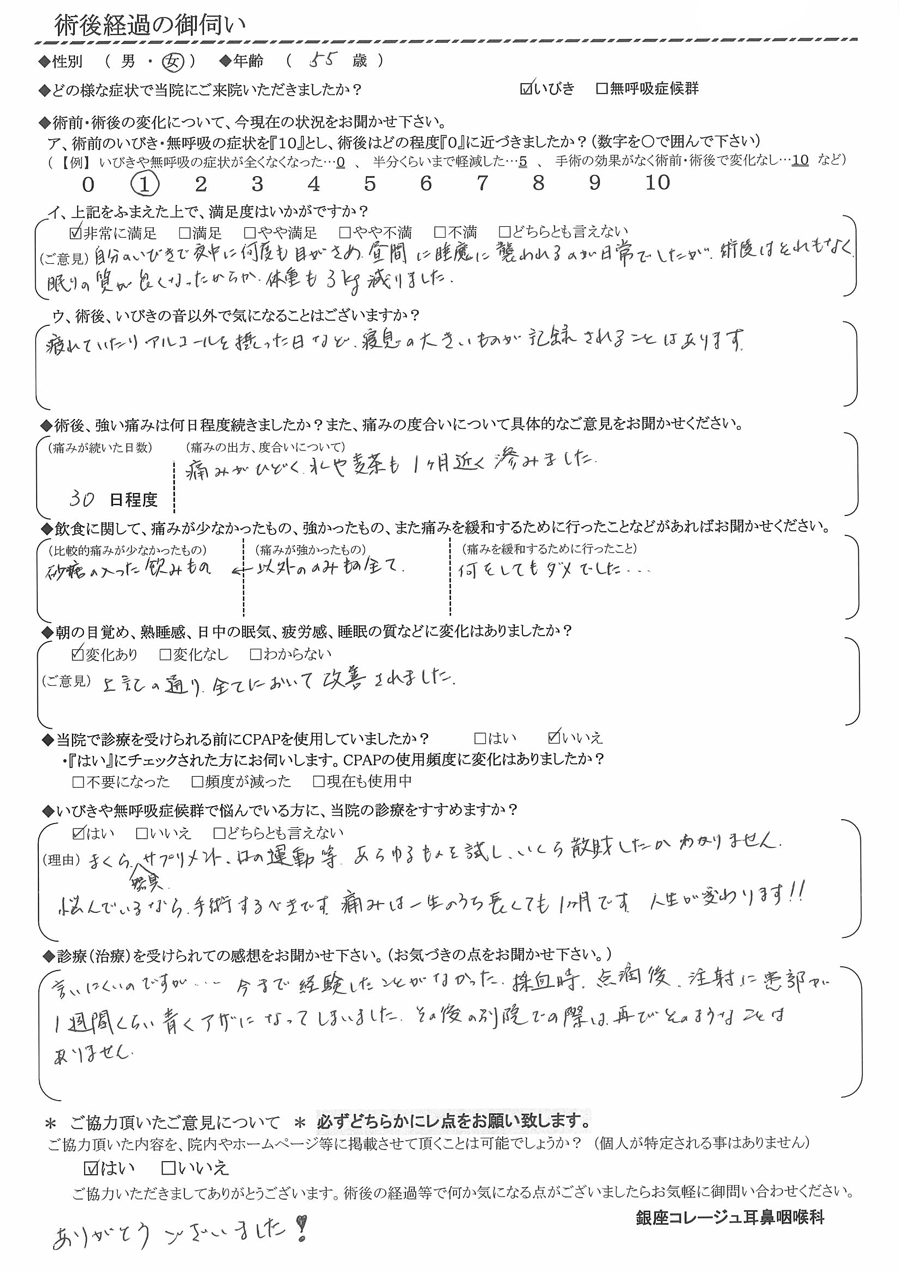 術後経過の御伺い
◆性別 ( 男 ・ 女 ) ◆年齢 ( 55 歳 )
◆どの様な症状で当院にご来院いただきましたか? ☑いびき □無呼吸症候群
◆術前・術後の変化について、今現在の状況をお聞かせ下さい。
ア、術前のいびき・無呼吸の症状を『10』とし、術後はどの程度『0』に近づきましたか?(数字を〇で囲んで下さい)
(【例】いびきや無呼吸の症状が全くなくなった…0 、 半分くらいまで軽減した…5 、 手術の効果がなく術前・術後で変化なし…10 など)
0 1 2 3 4 5 6 7 8 9 10
イ、上記をふまえた上で、満足度はいかがですか?
☑非常に満足 □満足 □やや満足 □やや不満 □不満 □どちらとも言えない
(ご意見) 自分のいびきで夜中に何度も目がさめ、昼間に睡魔に襲われるのが日常でしたが、術後はそれもなく
眠りの質が良くなったからか、体重も3kg減りました。
ウ、術後、いびきの音以外で気になることはございますか?
疲れていたりアルコールを摂った日など、寝息の大きいものが記録されることはあります。
◆術後、強い痛みは何日程度続きましたか?また、痛みの度合いについて具体的なご意見をお聞かせください。
(痛みが続いた日数) (痛みの出方、度合いについて)
痛みがひどく、水や麦茶も1ヶ月近く滲みました。
30 日程度
◆飲食に関して、痛みが少なかったもの、強かったもの、また痛みを緩和するために行ったことなどがあればお聞かせください。
(比較的痛みが少なかったもの) (痛みが強かったもの) (痛みを緩和するために行ったこと)
砂糖の入った飲みもの ←以外ののみもの全て。 何をしてもダメでした…
◆朝の目覚め、熟睡感、日中の眠気、疲労感、睡眠の質などに変化はありましたか?
☑変化あり □変化なし □わからない
(ご意見) 上記の通り、全てにおいて改善されました。
◆当院で診療を受けられる前にCPAPを使用していましたか? □はい ☑いいえ
・『はい』にチェックされた方にお伺いします。CPAPの使用頻度に変化はありましたか?
□不要になった □頻度が減った □現在も使用中
◆いびきや無呼吸症候群で悩んでいる方に、当院の診療をすすめますか?
☑はい □いいえ □どちらとも言えない
(理由) まくら、サプリメント、口の運動等、あらゆるものを試し、いくら散財したかわかりません。
器具、
悩んでいるなら、手術するべきです。痛みは一生のうち長くても1ヶ月です。人生が変わります!!
◆診療(治療)を受けられての感想をお聞かせ下さい。(お気づきの点をお聞かせ下さい。)
言いにくいのですが… 今まで経験したことがなかった、採血時、点滴後、注射に患部が
1週間くらい青くアザになってしまいました。その後の別院での際は、再びそのようなことは
ありません。
* ご協力頂いたご意見について * 必ずどちらかにレ点をお願い致します。
ご協力頂いた内容を、院内やホームページ等に掲載させて頂くことは可能でしょうか? (個人が特定される事はありません)
☑はい □いいえ
ご協力いただきましてありがとうございます。術後の経過等で何か気になる点がございましたらお気軽に御問い合わせください。
銀座コレージュ耳鼻咽喉科
ありがとうございました!